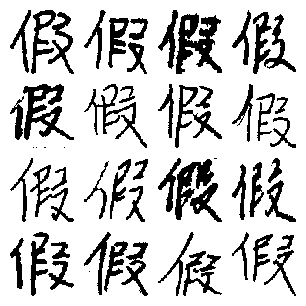 假假假假
假假假假
假假假假
假假假假